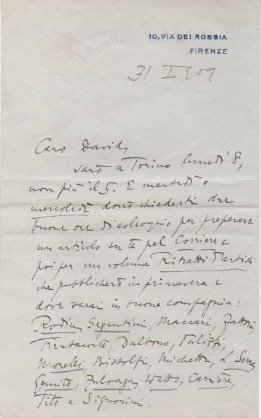 10, VIA DEI ROBBIA
FIRENZE
31 I
Caro Davide
sarò a Torino lunedì 8,
non più il 5. E martedì o
mercoledì dovrò chiederti due
buone ore di colloquio per preparare
un articolo su te pel Corriere e
poi per un volume Ritratti d'artisti
che pubblicherò in primavera e
dove sarai in buona compagnia:
Rodin, Segantini, Maccari, Fattori,
Trentacoste, Dalbono,
Morelli, Bistolfi, Michetti,
Gemito, Zuloaga, Watts, Carrière,
Tito e Signorini.